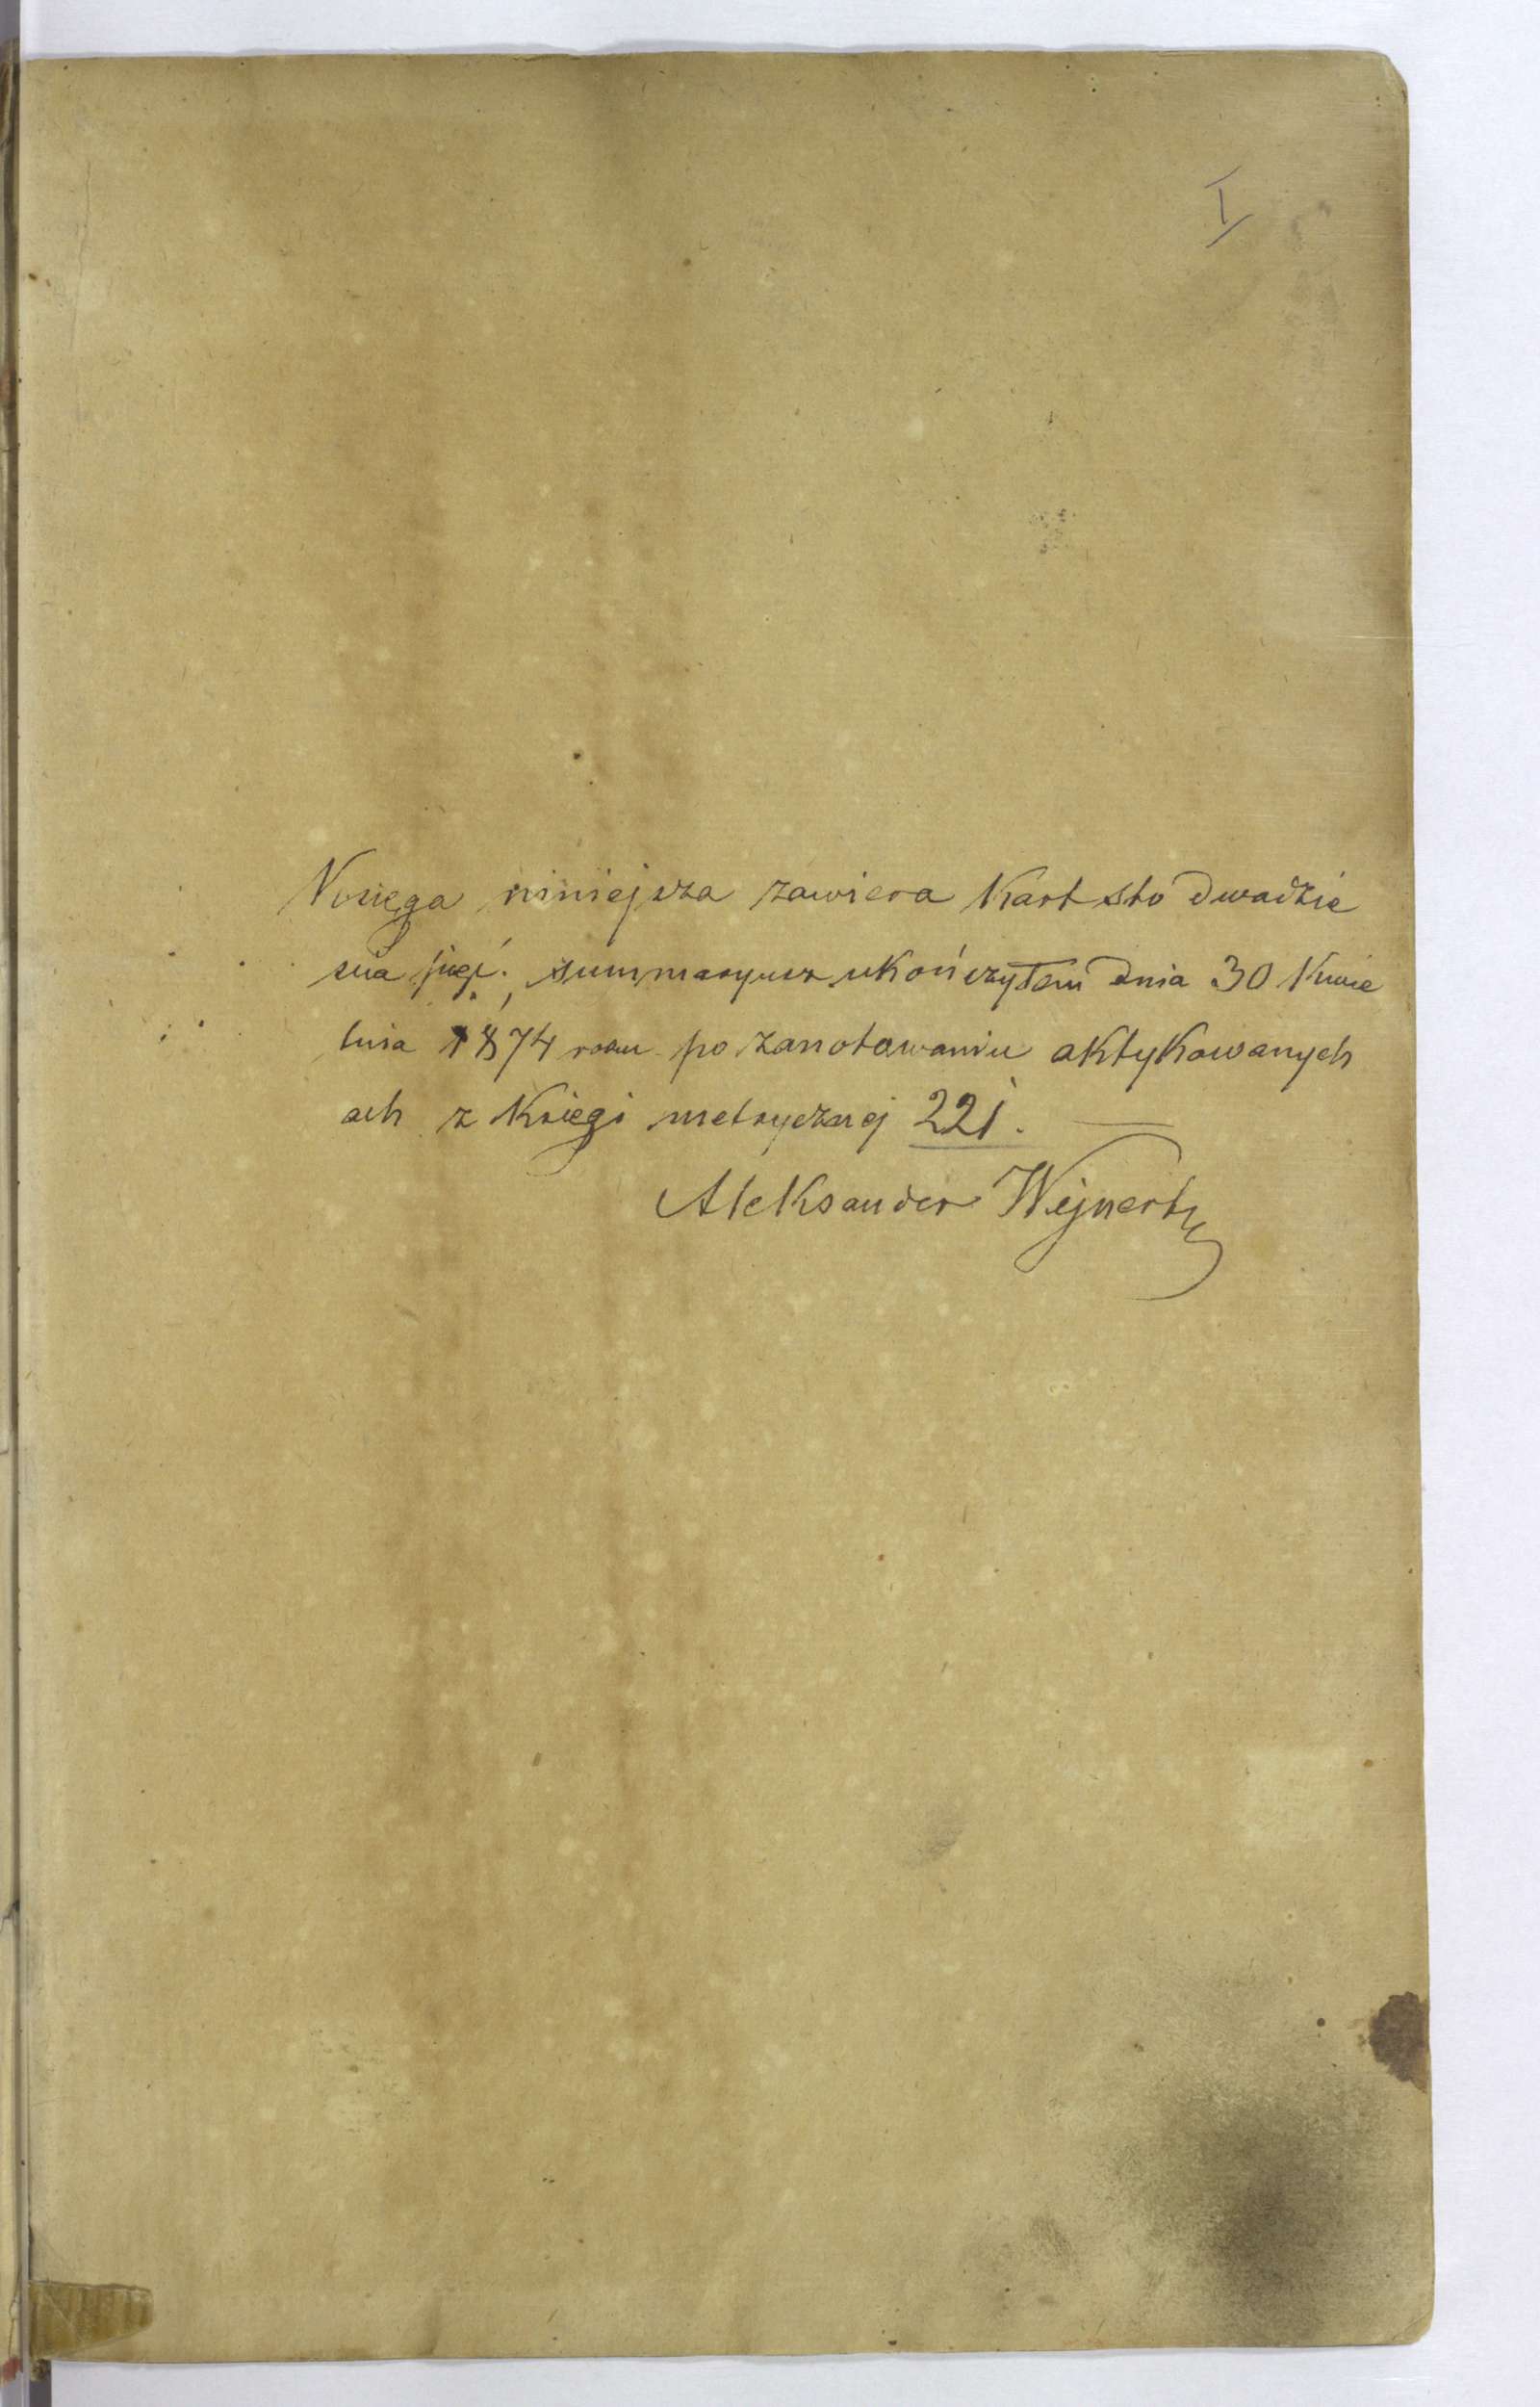 I
Księga niniejsza zawiera Kart sto dwadzie
scia pięć, summaryusz ukończyłem dnia 30 Kwie
tnia 1874 roku po zanotowaniu aktykowanych
ach z Księgi metrycznej 221.
Aleksander Wejnert